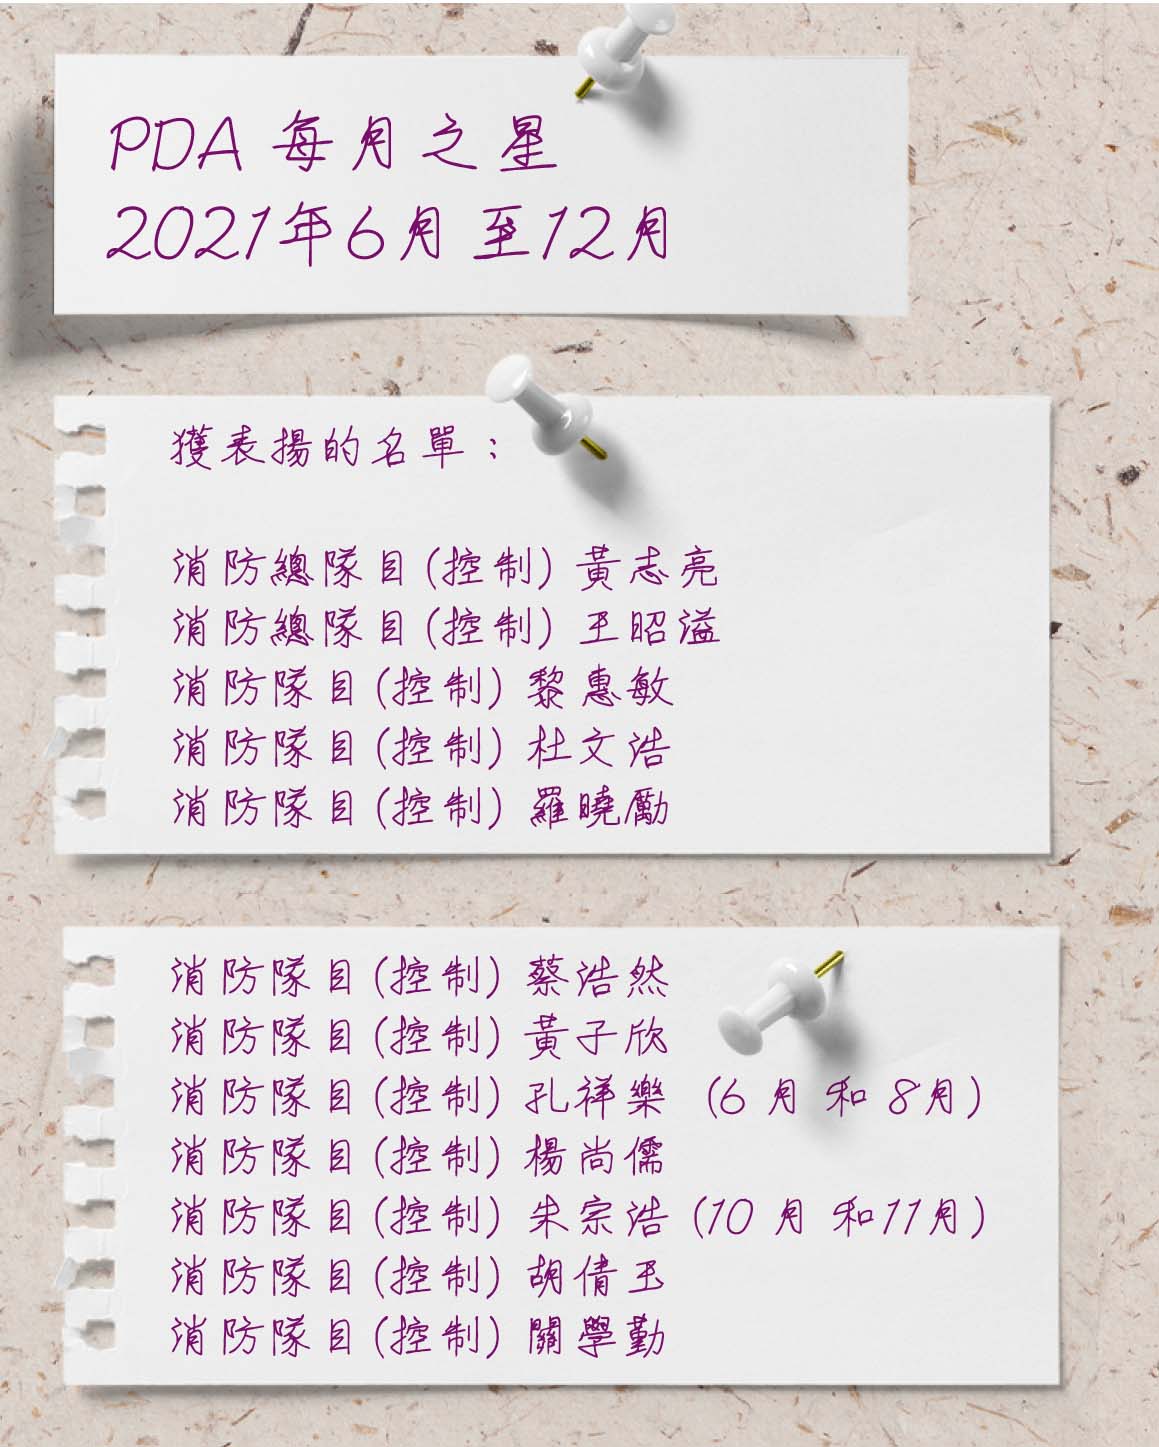 PDA 每月之星
2021年6月至12月
獲表揚的名單：
消防總隊目(控制) 黃志亮
消防總隊目(控制) 王昭溢
消防隊目(控制) 黎惠敏
消防隊目(控制) 杜文浩
消防隊目(控制) 羅曉勵
消防隊目(控制) 蔡浩然
消防隊目(控制) 黃子欣
消防隊目(控制) 孔祥樂 (6月和8月)
消防隊目(控制) 楊尚儒
消防隊目(控制) 朱宗浩 (10月和11月)
消防隊目(控制) 胡倩玉
消防隊目(控制) 關學勤